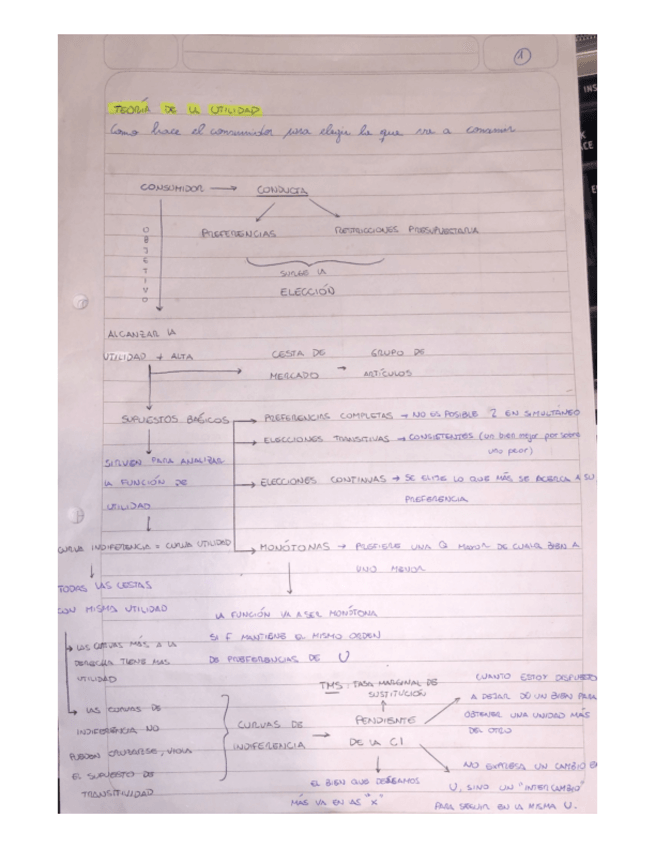 1
TEORIA DE LA UTILIDAD
Como hace el consumidor para elegir lo que va a consumir
CONSUMIDOR → CONDUCTA
OBJETIVO
PREFERENCIAS
RESTRICCIONES PRESUPUESTARIA
SURGE LA
ELECCIÓN
ALCANZAR LA
UTILIDAD + ALTA
CESTA DE MERCADO → GRUPO DE ARTÍCULOS
SUPUESTOS BÁSICOS
PREFERENCIAS COMPLETAS → NO ES POSIBLE 2 EN SIMULTÁNEO
ELECCIONES TRANSITIVAS → CONSISTENTES (un bien mejor por sobre
uno peor)
SIRVEN PARA ANALIZAR
LA FUNCIÓN DE
UTILIDAD
ELECCIONES CONTINUAS → SE ELIGE LO QUE MÁS SE ACERCA A SU
PREFERENCIA
CURVA INDIFERENCIA = CURVA UTILIDAD
MONÓTONAS → PREFIERE UNA Q MAYOR DE CUALQ BIEN A
UNO MENOR
TODAS LAS CESTAS
CON MISMA UTILIDAD
LA FUNCIÓN VA A SER MONÓTONA
SI F MANTIENE EL MISMO ORDEN
DE PREFERENCIAS DE U
LAS CURVAS MÁS A LA
DERECHA TIENE MAS
UTILIDAD
LAS CURVAS DE
INDIFERENCIA NO
PUEDEN CRUZARSE, VIOLA
EL SUPUESTO DE
TRANSITIVIDAD
CURVAS DE
INDIFERENCIA
TMS: TASA MARGINAL DE
SUSTITUCIÓN
PENDIENTE
DE LA CI
CUANTO ESTOY DISPUESTO
A DEJAR DE UN BIEN PARA
OBTENER UNA UNIDAD MÁS
DEL OTRO
NO EXPRESA UN CAMBIO EN
U, SINO UN "INTERCAMBIO"
PARA SEGUIR EN LA MISMA U.
EL BIEN QUE DESEAMOS
MÁS VA EN AS "X"
INS